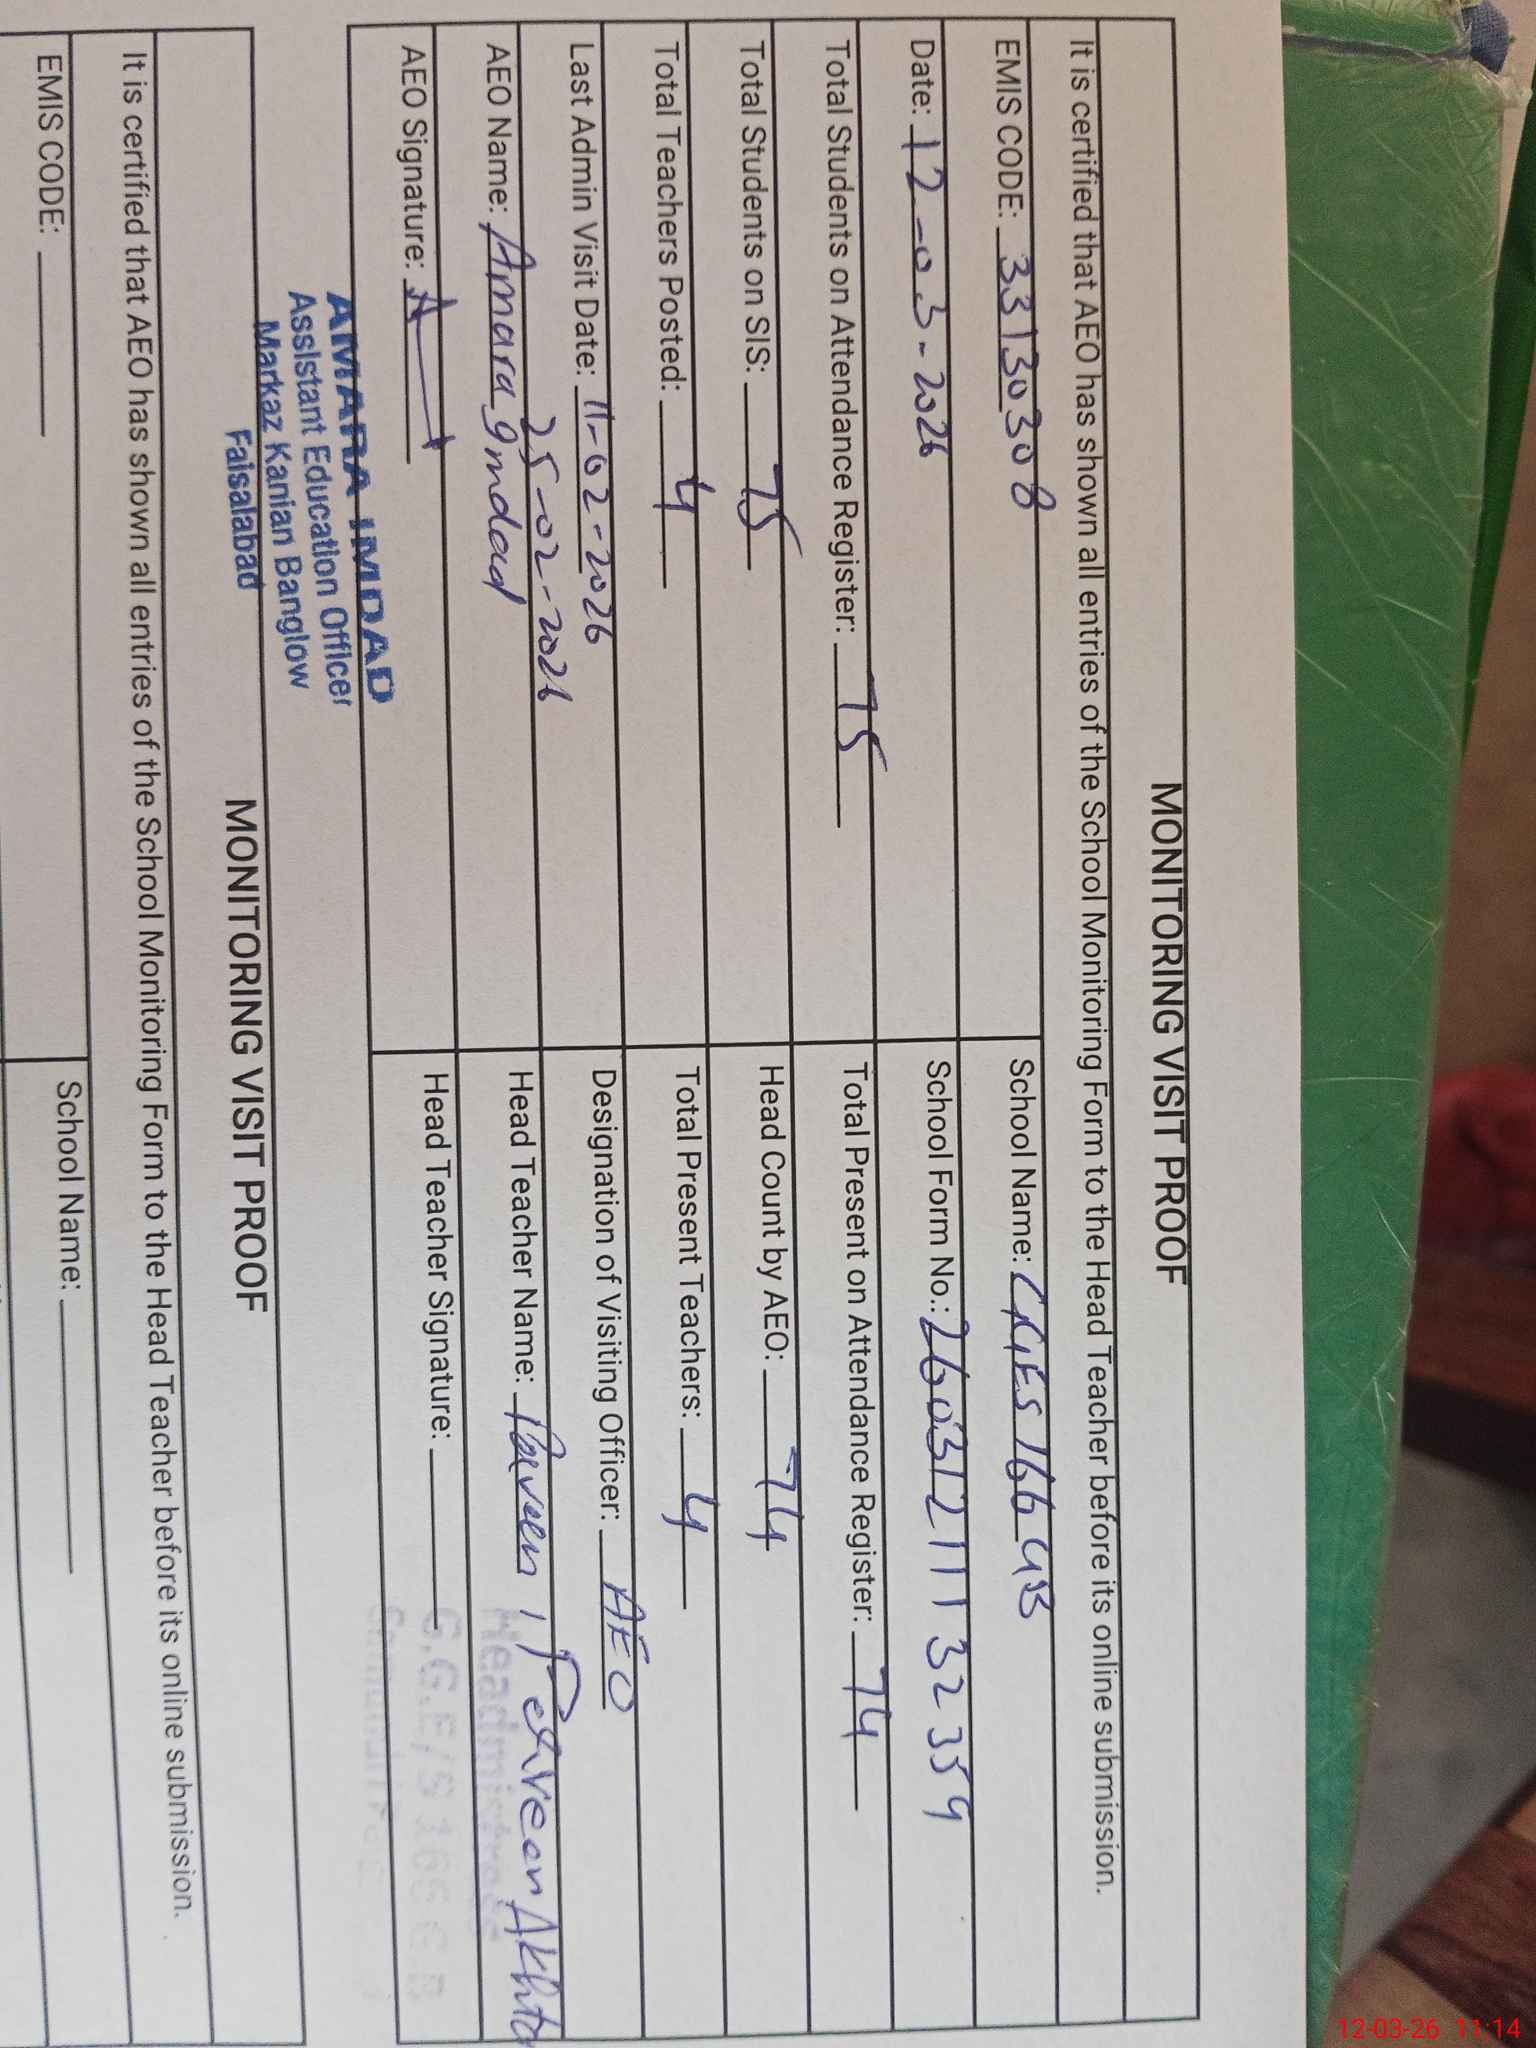 MONITORING VISIT PROOF
It is certified that AEO has shown all entries of the School Monitoring Form to the Head Teacher before its online submission.
EMIS CODE: 33130308 School Name: GGES 166 GB
Date: 12-03-2026 School Form No.: 26031211132359
Total Students on Attendance Register: 75 Total Present on Attendance Register: 74
Total Students on SIS: 75 Head Count by AEO: 74
Total Teachers Posted: 4 Total Present Teachers: 4
Last Admin Visit Date: 11-02-2026 Designation of Visiting Officer: AEO
25-02-2026
AEO Name: Amara Imdad Head Teacher Name: Parveen, Parveen Akhta
AEO Signature: Head Teacher Signature:
Headmistress
G.G.E/S 166 G.B
AMARA IMDAD
Assistant Education Officer
Markaz Kanian Banglow
Faisalabad
MONITORING VISIT PROOF
It is certified that AEO has shown all entries of the School Monitoring Form to the Head Teacher before its online submission.
EMIS CODE: School Name:
12-03-26 11:14